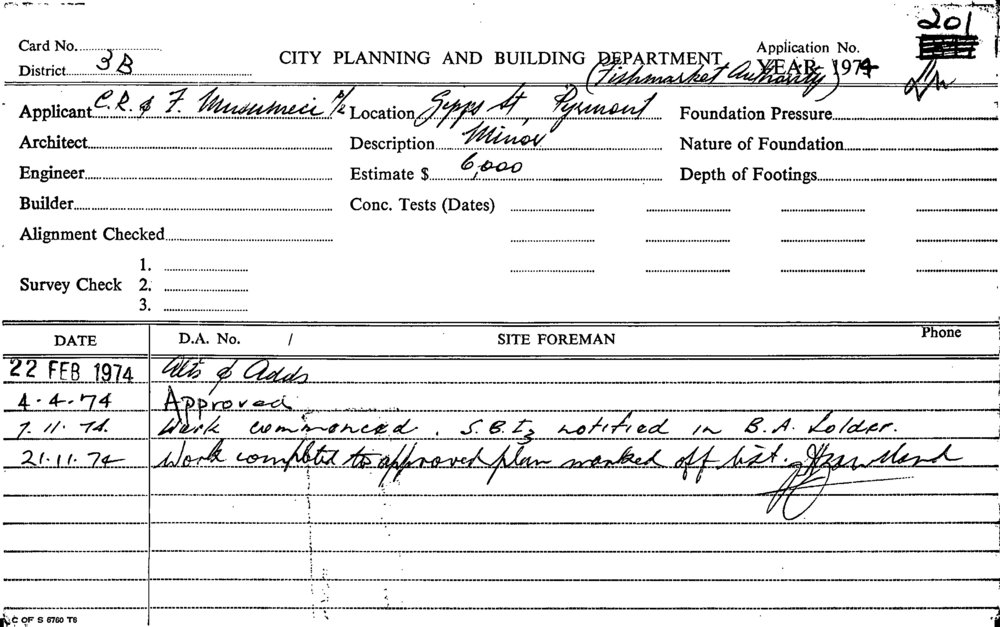 201
Card No. CITY PLANNING AND BUILDING DEPARTMENT Application No.
District 3B (Fishmarket Authority) YEAR 1974
Applicant C.R. & F. Musumeci P/L Location Gipps St Pyrmont Foundation Pressure
Architect Description Minor Nature of Foundation
Engineer Estimate $ 6,000 Depth of Footings
Builder Conc. Tests (Dates)
Alignment Checked
1.
Survey Check 2.
3.
DATE D.A. No. / SITE FOREMAN Phone
22 FEB 1974 Alts & Adds
4.4.74 Approved
7.11.74. Work commenced. S.B.I notified in B.A. folder.
21.11.74 Work completed to approved plan marked off list.
C OF S 6760 T6